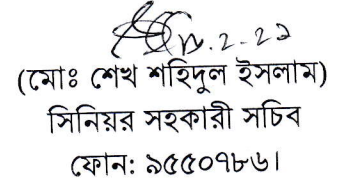 (মোঃ শেখ শহিদুল ইসলাম)
সিনিয়র সহকারী সচিব
ফোন: ৯৫৫০৭৮৬।